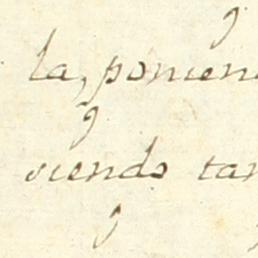 la, ponien
viendo tan